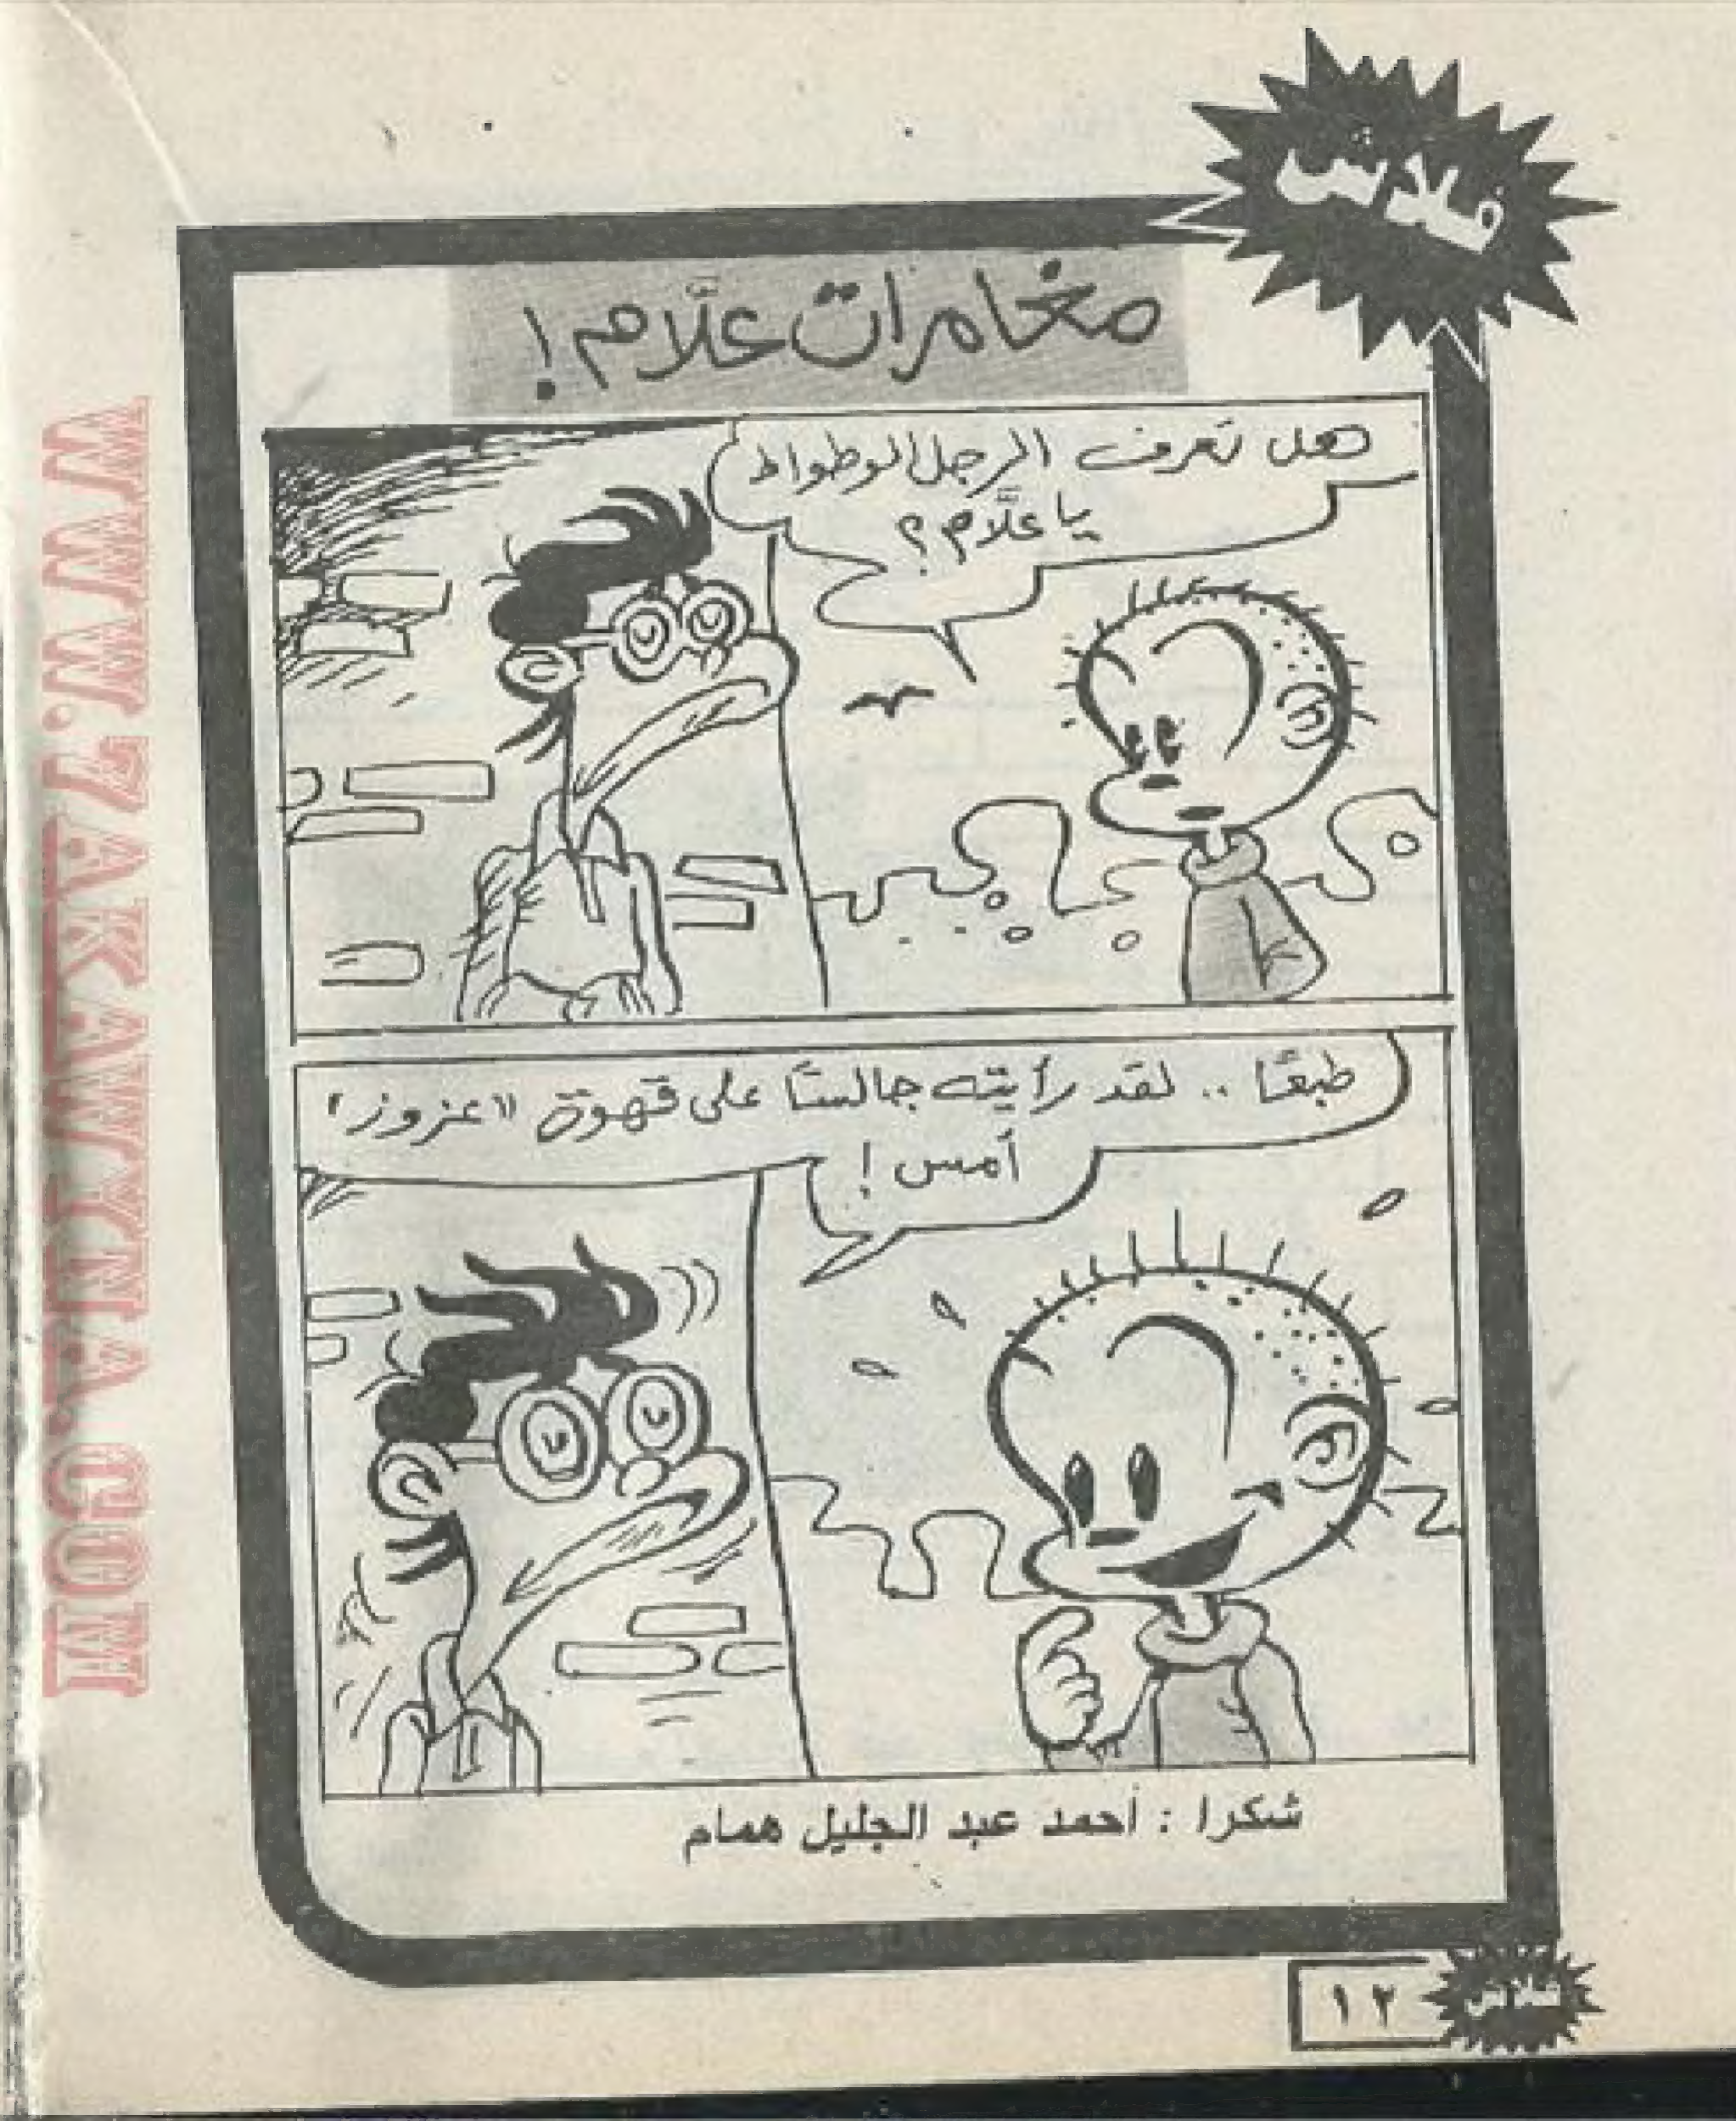 فلاش
مغامرات علَّام!
هل تعرف الرجل الوطواط
يا علَّام؟
طبعًا .. لقد رأيته جالسًا على قهوة «عزوز»
أمس!
شكرا : أحمد عبد الجليل همام
١٢
فلاش
WWW.7AKAWYNA.COM